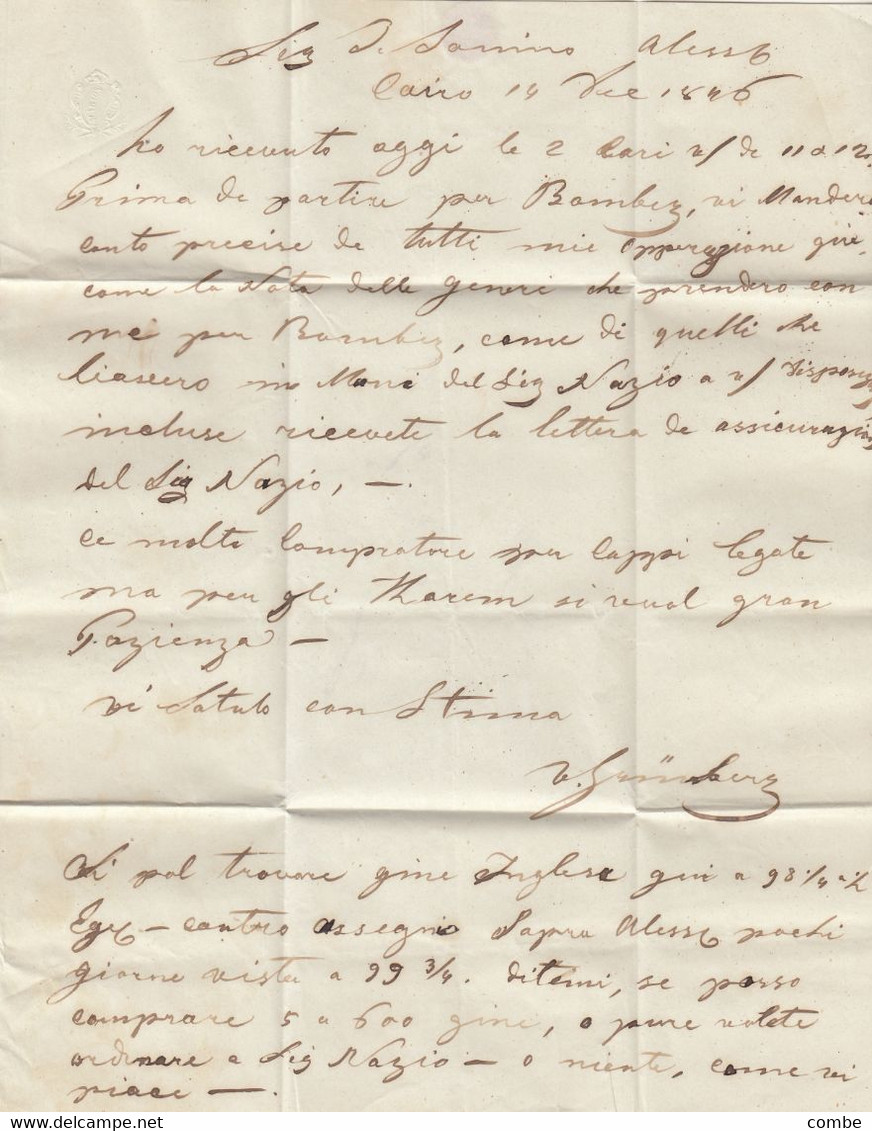 Sig D. Sonino Aless
Cairo 14 Dec 1846
ho ricevuto aggi le 2 Cari v/ de 11 & 12.
Prima de partire per Bombez, vi Mandero
conto precise de tutti mie Opperazione gui,
come la Nota delle generi che prendero con
me per Bombez, come di quelli che
liascero in Mani del Sig Nazio a v/ disposiz
incluse ricevete la lettera de assicurazion
del Sig Nazio, —.
ce molte Compratore per Cappi legate
ma per gli Harem si vuol gran
Pazienza —
vi Saluto con Stima
Grünberg
Si pol trovare gine Inglese gui a 98 1/4
Egy — contro assegnio Sopra Aless pochi
giorne vista a 99 3/4. ditemi, se posso
comprare 5 a 600 gine, o pure volete
ordinare a Sig Nazio — o niente, come vi
piace —.
combe